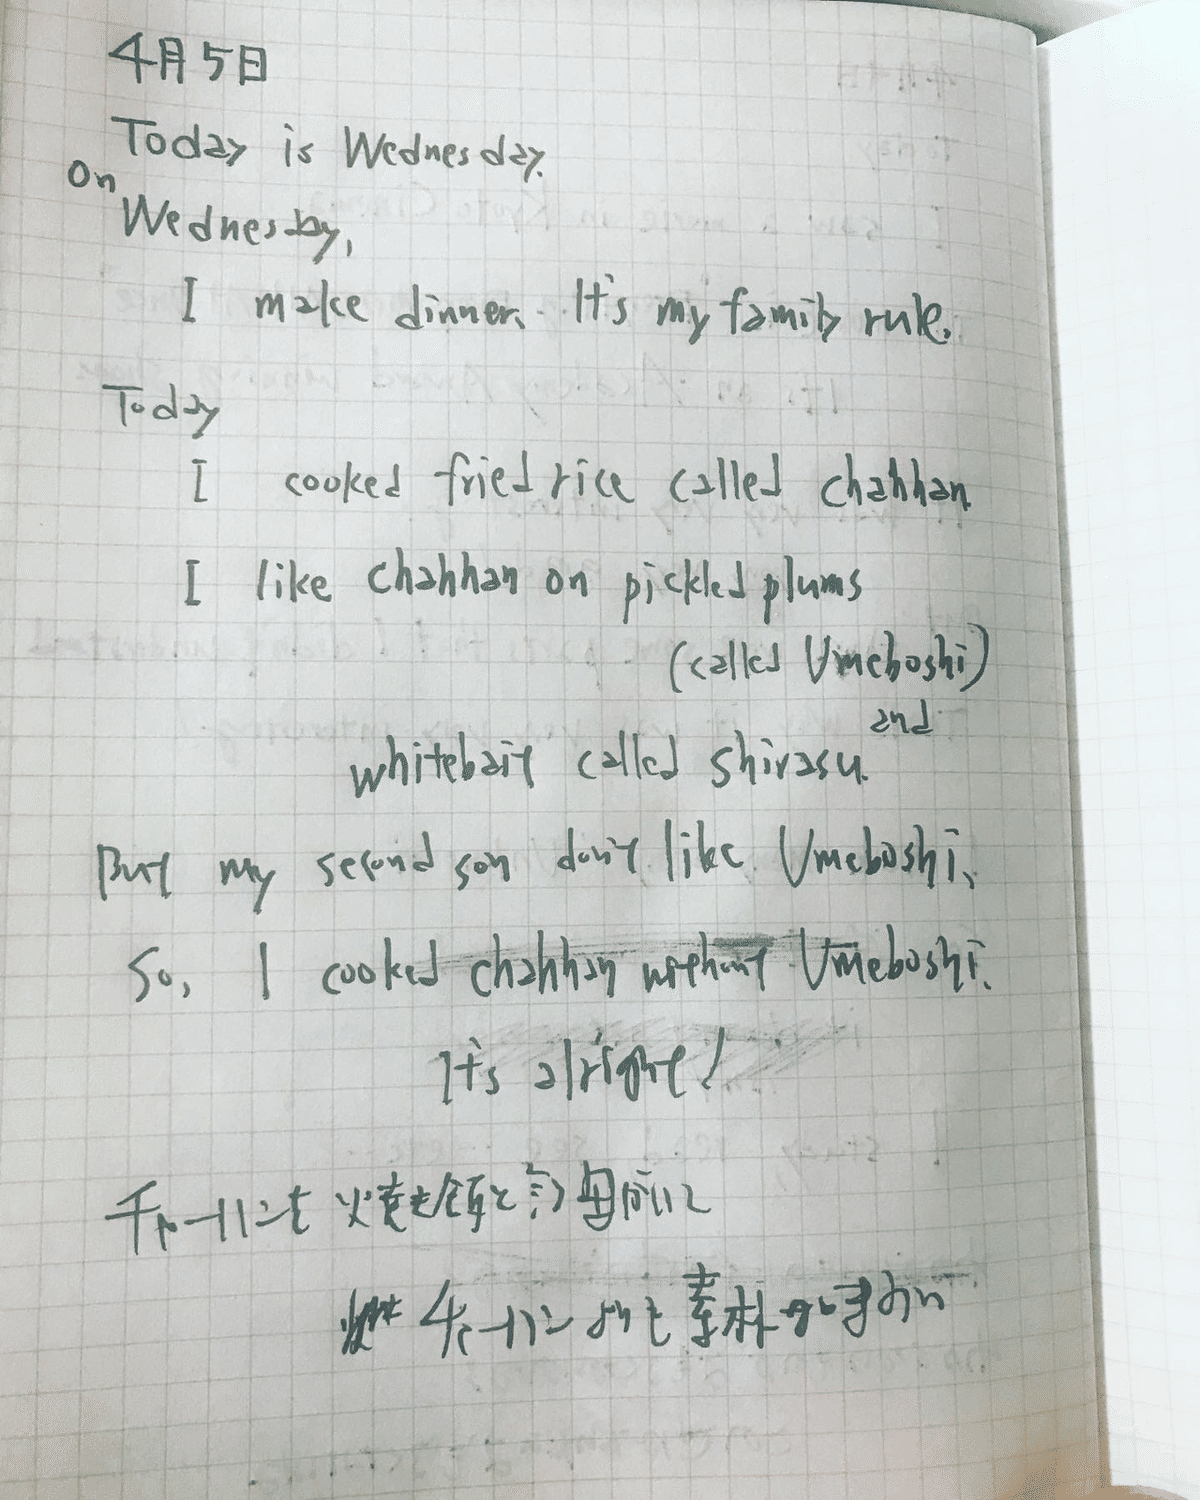 4月5日
Today is Wednesday.
On
Wednesday,
I make dinner. It's my family rule.
Today
I cooked fried rice called chahhan
I like chahhan on pickled plums
(called Umeboshi)
and
whitebait called shirasu.
But my second son don't like Umeboshi.
So, I cooked chahhan without Umeboshi.
It's alright!
チャーハンを 焼き飯と言う
チャーハン よりも 素材